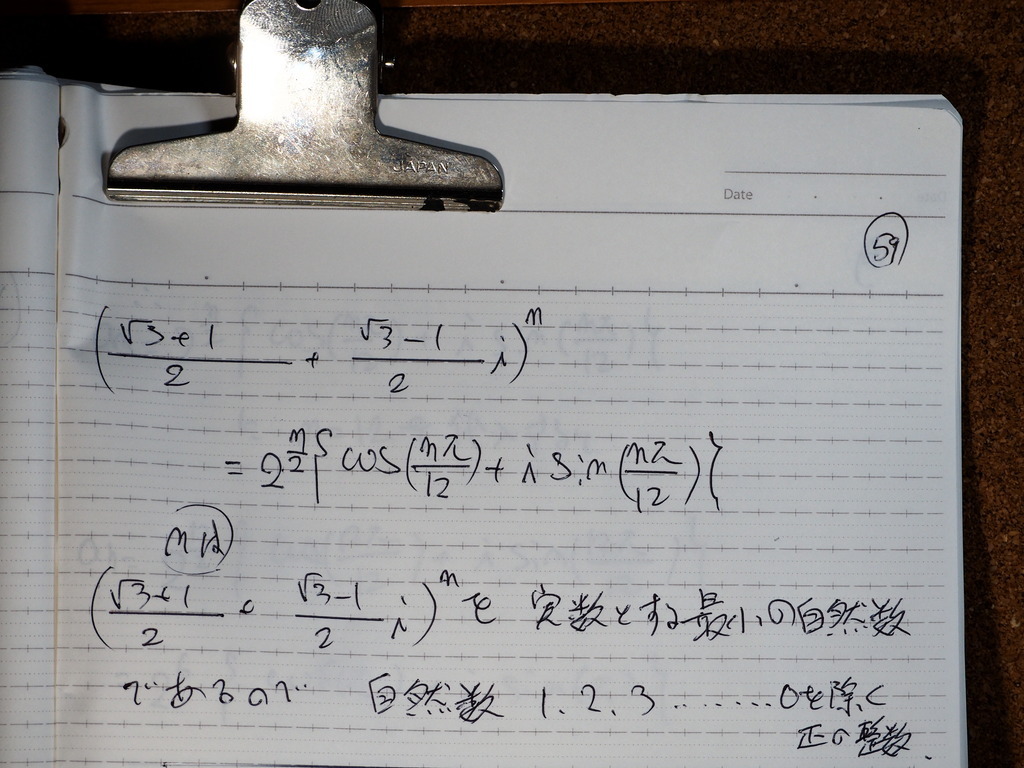 JAPAN
Date
59
(√3+1/2 + √3-1/2 i)^n
= 2^(n/2) { cos(nπ/12) + i sin(nπ/12) }
nは
(√3+1/2 + √3-1/2 i)^n を 実数とする最小の自然数
であるので 自然数 1、2、3 ........ 0を除く
正の整数.